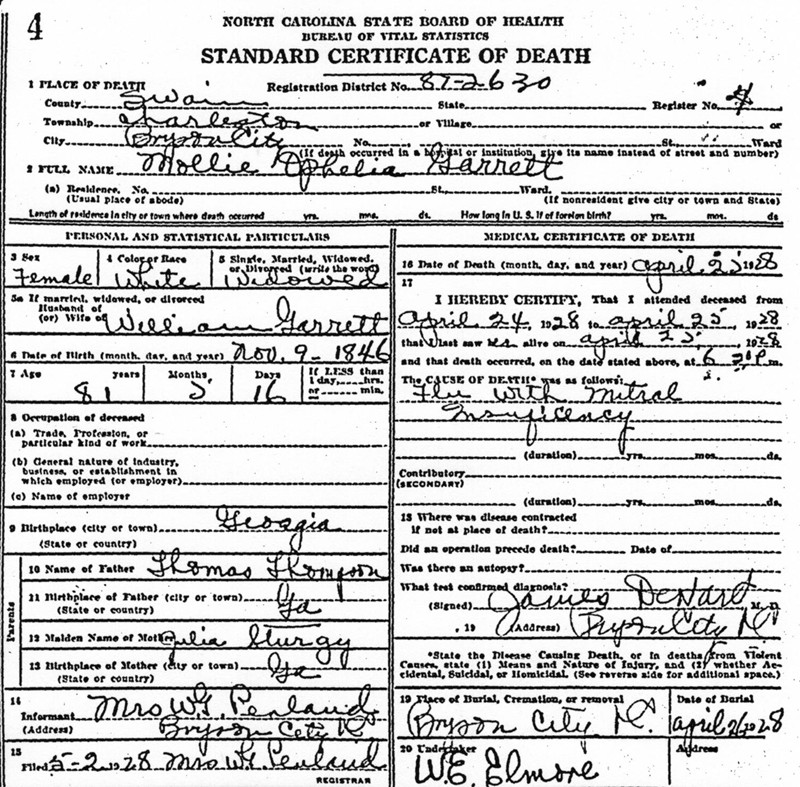 4
NORTH CAROLINA STATE BOARD OF HEALTH
BUREAU OF VITAL STATISTICS
STANDARD CERTIFICATE OF DEATH
1 PLACE OF DEATH Registration District No. 87-2630
County Swain State Register No. 4
Township Charleston or Village or
City Bryson City No. St. Ward
(If death occurred in a hospital or institution, give its name instead of street and number)
2 FULL NAME Mollie Ophelia Garrett
(a) Residence. No. St. Ward.
(Usual place of abode) (If nonresident give city or town and State)
Length of residence in city or town where death occurred yrs. mos. ds. How long in U. S. if of foreign birth? yrs. mos. ds.
PERSONAL AND STATISTICAL PARTICULARS
3 Sex 4 Color or Race 5 Single, Married, Widowed,
or Divorced (write the word)
Female White Widowed
5a If married, widowed, or divorced
Husband of
(or) Wife of William Garrett
6 Date of Birth (month, day, and year) Nov. 9 - 1846
7 Age years Months Days If LESS than
1 day, hrs.
or min.
81 5 16
8 Occupation of deceased
(a) Trade, Profession, or
particular kind of work
(b) General nature of industry,
business, or establishment in
which employed (or employer)
(c) Name of employer
9 Birthplace (city or town) Georgia
(State or country)
Parents
10 Name of Father Thomas Thompson
11 Birthplace of Father (city or town) Ga
(State or country)
12 Maiden Name of Mother Julia Sturgy
13 Birthplace of Mother (city or town) Ga
(State or country)
14
Informant Mrs W. T. Penland
(Address) Bryson City N.C.
15
Filed 5-2 1928 Mrs W. T. Penland
REGISTRAR
MEDICAL CERTIFICATE OF DEATH
16 Date of Death (month, day, and year) April 25 1928
17
I HEREBY CERTIFY, That I attended deceased from
April 24, 1928 to April 25, 1928
that I last saw her alive on April 25, 1928
and that death occurred, on the date stated above, at 6 P. m.
The CAUSE OF DEATH* was as follows:
Flu with Mitral
Insuficency
(duration) yrs. mos. ds.
Contributory
(SECONDARY)
(duration) yrs. mos. ds.
18 Where was disease contracted
if not at place of death?
Did an operation precede death? Date of
Was there an autopsy?
What test confirmed diagnosis?
(Signed) James DeHart M. D.
, 19 (Address) Bryson City N.C.
*State the Disease Causing Death, or in deaths from Violent
Causes, state (1) Means and Nature of Injury, and (2) whether Ac-
cidental, Suicidal, or Homicidal. (See reverse side for additional space.)
19 Place of Burial, Cremation, or removal Date of Burial
Bryson City N.C. April 26 1928
20 Undertaker Address
W.E. Elmore